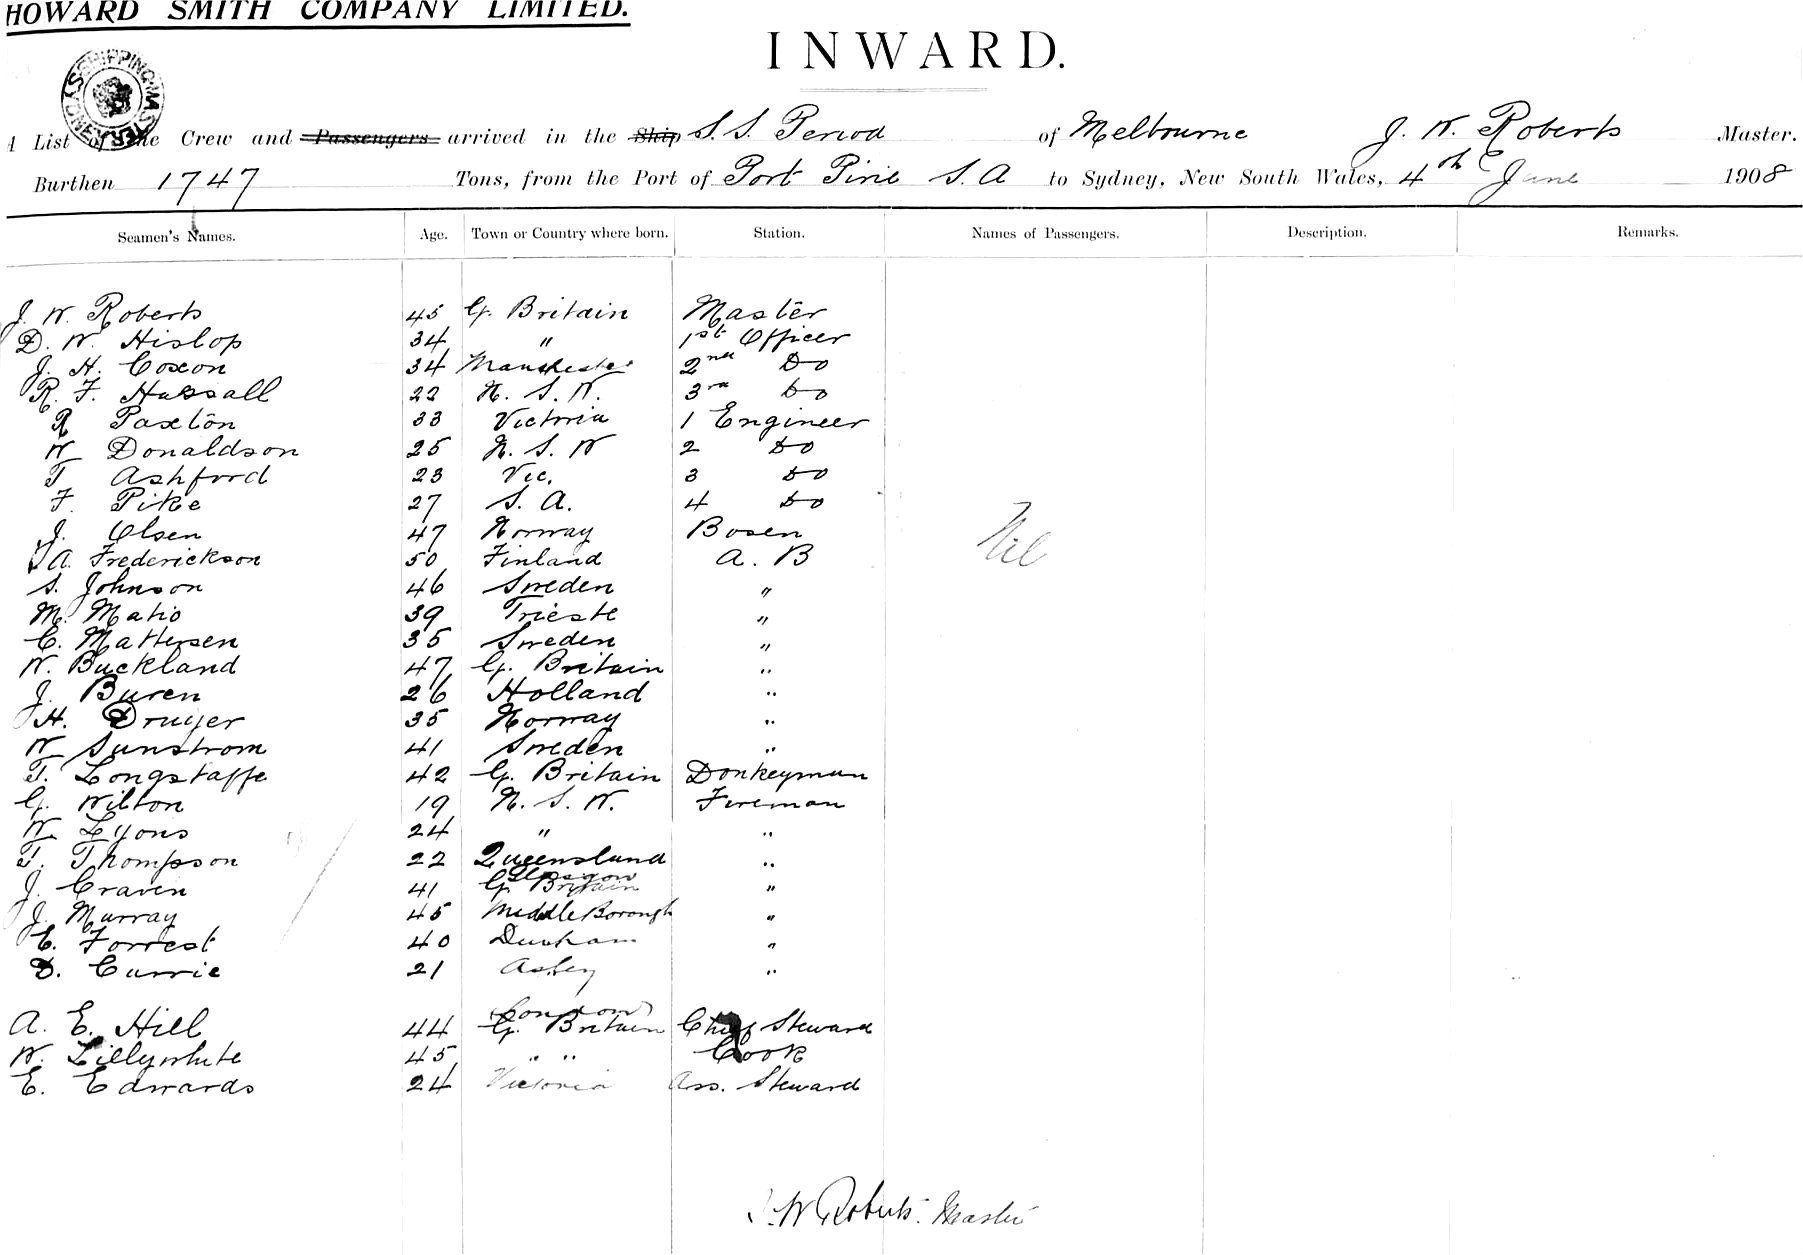 HOWARD SMITH COMPANY LIMITED.
INWARD.
SHIPPING MASTER SYDNEY
List of the Crew and Passengers arrived in the Ship S. S. Period of Melbourne J. W. Roberts Master.
Burthen 1747 Tons, from the Port of Port Pirie S. A to Sydney, New South Wales, 4th June 1908
Seamen's Names. Age. Town or Country where born. Station. Names of Passengers. Description. Remarks.
J. W. Roberts 45 G. Britain Master
D. W. Hislop 34 " 1st Officer
J. H. Coxon 34 Manchester 2nd Do
R. F. Hassall 22 N. S. W. 3rd Do
R Paxton 33 Victoria 1 Engineer
W Donaldson 25 N. S. W 2 Do
T Ashford 23 Vic. 3 Do
F. Pike 27 S. A. 4 Do
J. Olsen 47 Norway Bosen
A. Frederickson 50 Finland A. B Nil
S. Johnson 46 Sweden "
M. Matio 39 Trieste "
C. Mattersen 35 Sweden "
W. Buckland 47 G. Britain "
J. Buren 26 Holland "
H. Druyer 35 Norway "
W Sunstrom 41 Sweden "
T. Longstaffe 42 G. Britain Donkeyman
G. Wilton 19 N. S. W. Fireman
W Lyons 24 " "
T. Thompson 22 Queensland "
Glasgow
J. Craven 41 G. Britain "
J. Murray 45 MiddleBorough "
E. Forrest 40 Durham "
D. Currie 21 "
London
A. E. Hill 44 G. Britain Chief Steward
W. Lillywhite 45 " " Cook
E. Edwards 24 Victoria Ass. Steward
J. W Roberts. Master